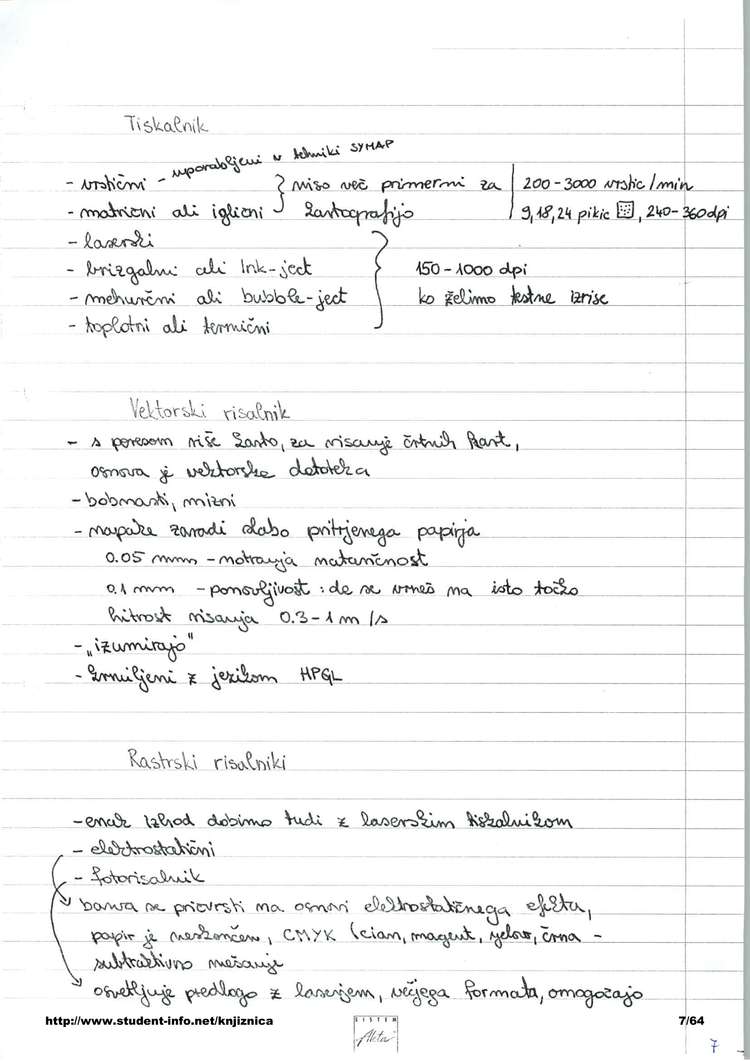 Tiskalnik
- vrstični - uporabljeni v tehniki SYMAP
} niso več primerni za | 200-3000 vrstic/min
- matrični ali iglični kartografijo | 9,18,24 pikic, 240-360dpi
- laserski
- brizgalni ali Ink-ject } 150-1000 dpi
- mehurčni ali bubble-ject ko želimo testne izrise
- toplotni ali termični
Vektorski risalnik
- s peresom riše karto, za risanje črtnih kart,
osnova je vektorska datoteka
- bobnasti, mizni
- napake zaradi slabo pritrjenega papirja
0.05 mm - notranja natančnost
0.1 mm - ponovljivost : da se vrneš na isto točko
hitrost risanja 0.3-1 m/s
- „izumirajo"
- krmiljeni z jezikom HPGL
Rastrski risalniki
- enak izhod dobimo tudi z laserskim tiskalnikom
- elektrostatični
- fotorisalnik
barva se pričvrsti na osnovi elektrostatičnega efekta,
papir je neskončen, CMYK (cian, magent, yelow, črna -
subtraktivno mešanje
osvetljuje predlogo z laserjem, večjega formata, omogočajo
http://www.student-info.net/knjiznica
SISTEM
7/64
7